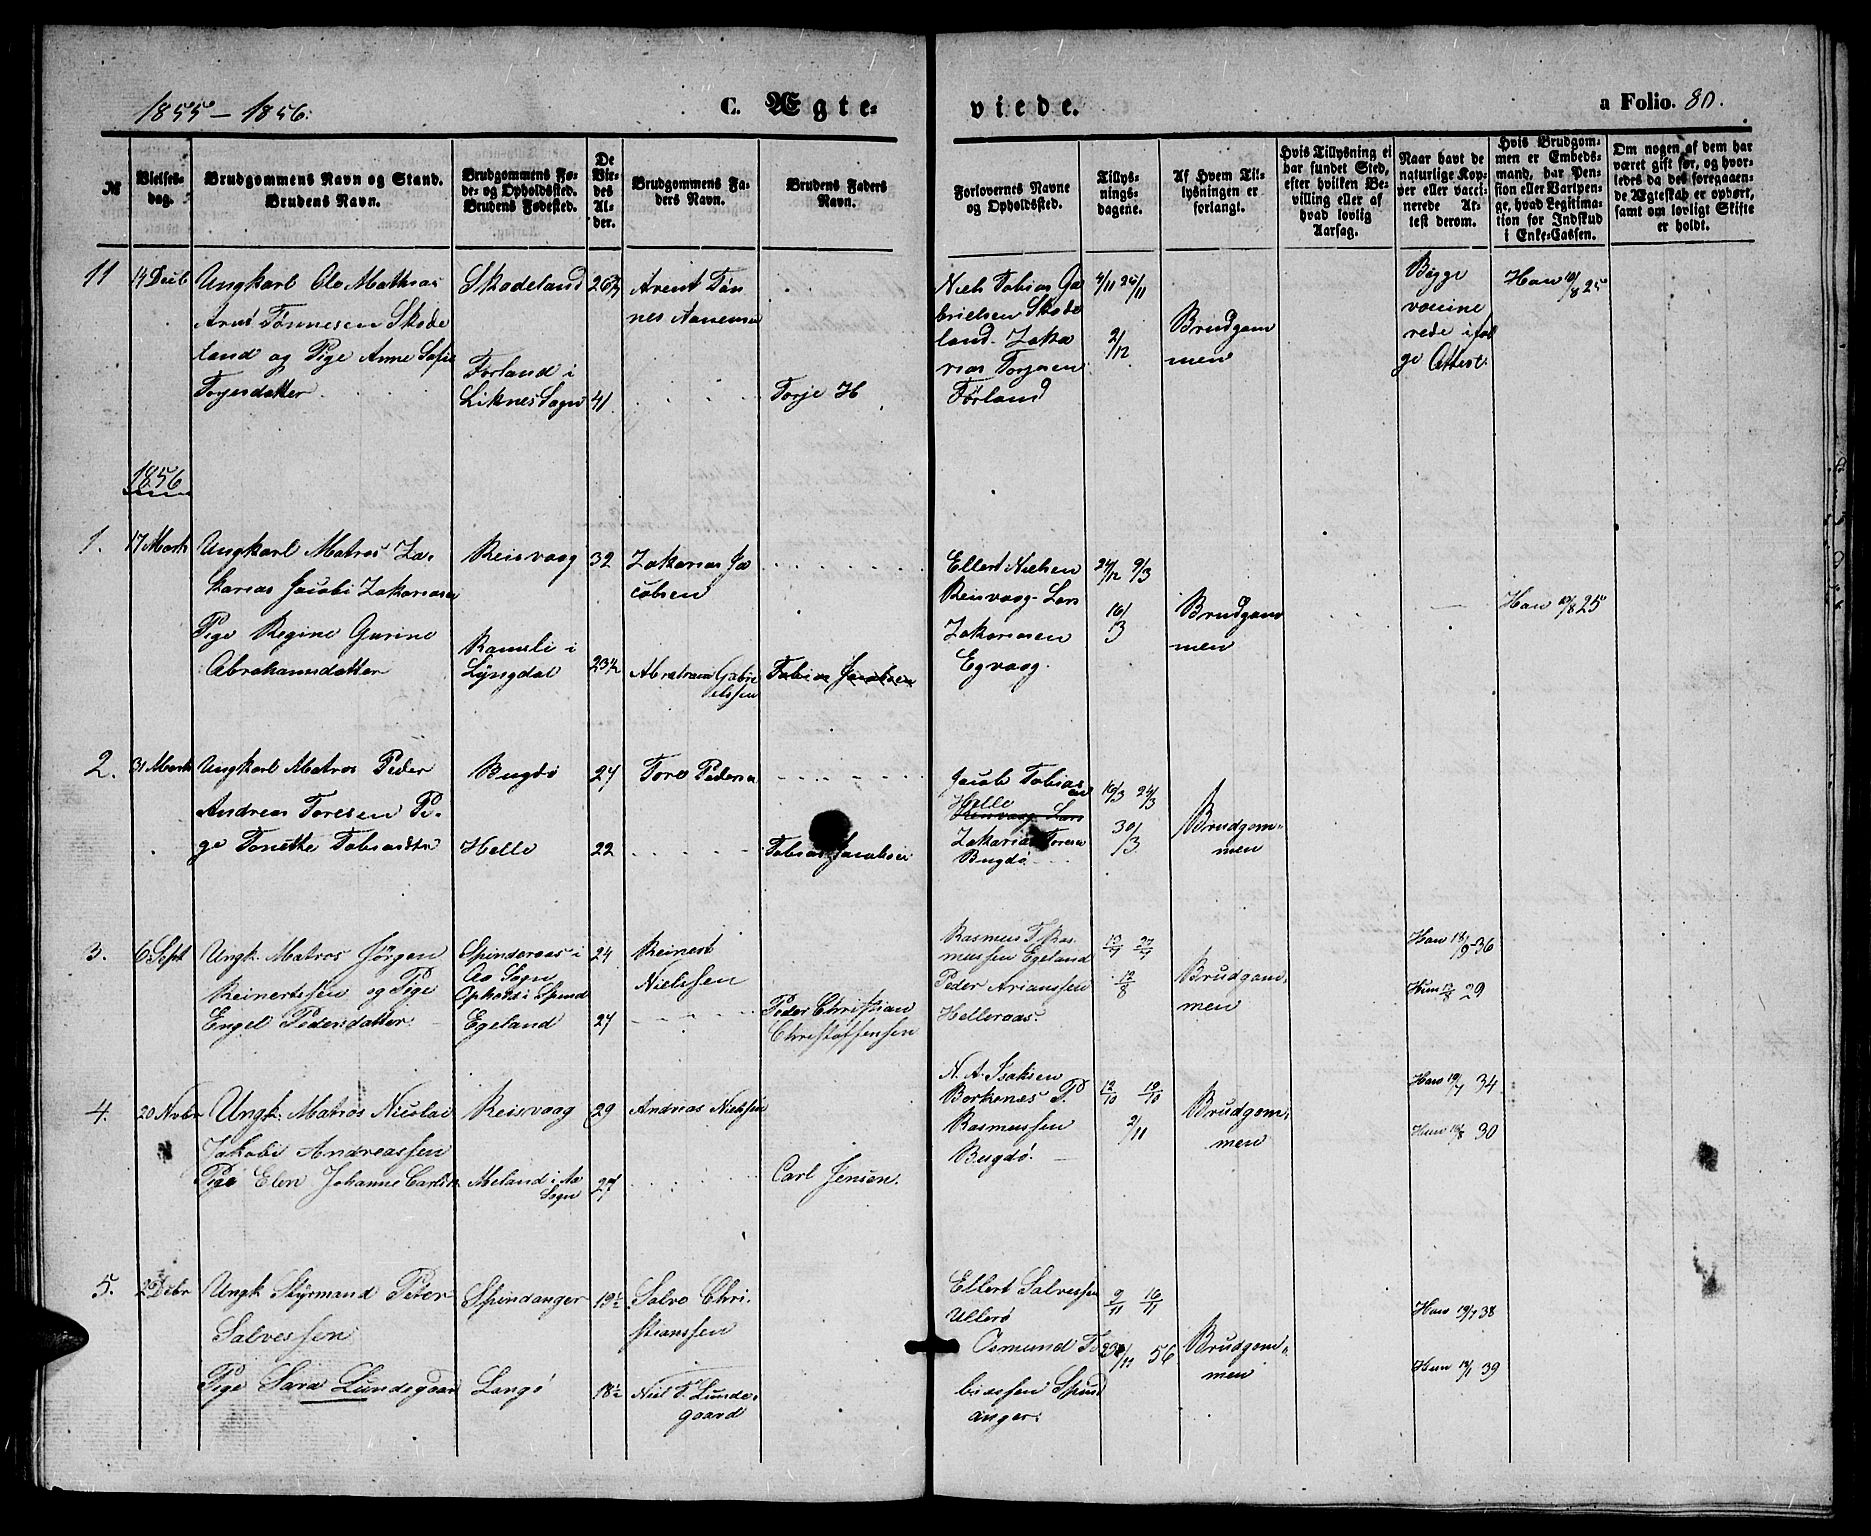 1855–1856.
C. Ægte-
viede.
a Folio. 80.
№
Vielses-
dag.
Brudgommens Navn og Stand.
Brudens Navn.
Brudgommens Fø-
de- og Opholdssted.
Brudens Fødested.
De
Vie-
des
Al-
der.
Brudgommens Fa-
ders Navn.
Brudens Faders
Navn.
Forlovernes Navne
og Opholdssted.
Tillys-
nings-
dagene.
Af Hvem Til-
lysningen er
forlangt.
Hvis Tillysning ei
har fundet Sted,
efter hvilken Be-
villing eller af
hvad lovlig
Aarsag.
Naar havt de
naturlige Kop-
per eller vacci-
nerede At-
test derom.
Hvis Brudgom-
men er Embeds-
mand, har Pen-
sion eller Vartpen-
ge, hvad Legitima-
tion for Indskud
i Enke-Cassen.
Om nogen af dem har
været gift før, og hvor-
ledes da det foregaaen-
de Ægteskab er ophørt,
samt om lovligt Skifte
er holdt.
11
14 Decb
Ungkarl Ole Mathias
Arnt Tønnesen Skode
land og Pige Anne Sofie
Torjesdatter
Skodeland
Førland i
Liknes Sogn
26
41
Arent Tøn
nes Aanensen
Torje H
Niels Tobias Ga
brielsen Skode
land. Zaka
rias Torjesen
Førland
4/11 25/11
2/12
Brudgom
men
Begge
vaccine
rede iføl
ge Attest.
Han 10/8 25
1856
1.
17 Marts
Ungkarl Matros Za-
karias Jacobi Zakariasen
Pige Regine Gurine
Abrahamsdatter
Reisvaag
Ramsli i
Lyngdal
32
23½
Zakarias Ja
cobsen
Abraham Gabri
elssen
Tobias Jacobsen
Ellert Nielsen
Reisvaag. Lars
Zakariasen
Egvaag.
24/12 9/3
16/3
Brudgom
men
Han 10/8 25
2.
31 Marts
Ungkarl Matros Peder
Andreas Toresen Pi-
ge Tonette Tobiasdtr
Bugdø
Helle
27
22
Tore Pedersen
Tobias Jacobsen
Jacob Tobias
en
Helle
Reisvaag Lars
Zakarias Toresen
Bugdø
16/3 24/3
30/3
Brudgom-
men
3.
6 Sept
Ungk. Matros Jörgen
Reinertssen og Pige
Engel Pedersdatter
Spinderaas i
Aa Sogn
Ophold i Spind
Egeland
24
27
Reinert
Nielssen
Peder Christian
Christoffensen
Rasmus T. Ras
mussen Egeland
Peder Arianssen
Helleraas.
Brudgom
men
Han 18/9 36
Hun 13/8 29
4.
20 Novbr
Ungk. Matros Nicolai
Jakobi Andreassen
Pige Elen Johanne Carlsdtr
Reisvaag
Meland i Aa
Sogn
29
27
Andreas Nielsen
Carl Jensen.
N. A. Isaksen
Borkenes P.
Rasmussen
Bugdø.
12/10 19/10
2/11
Brudgom-
men
Han 19/7 34
Hun 18/8 30
5.
2 Debr
Ungk Styrmand Peter
Salvessen
Pige Sara Lundegaard
Spindanger
Langø
19½
18½
Salve Chri-
stianssen
Niel T. Lunde-
gaard
Ellert Salvessen
Ullerø
Osmund To
biassen Spind
anger.
9/11 16/11
23/11 56
Brudgom-
men
Han 19/7 38
Hun 18/7 39